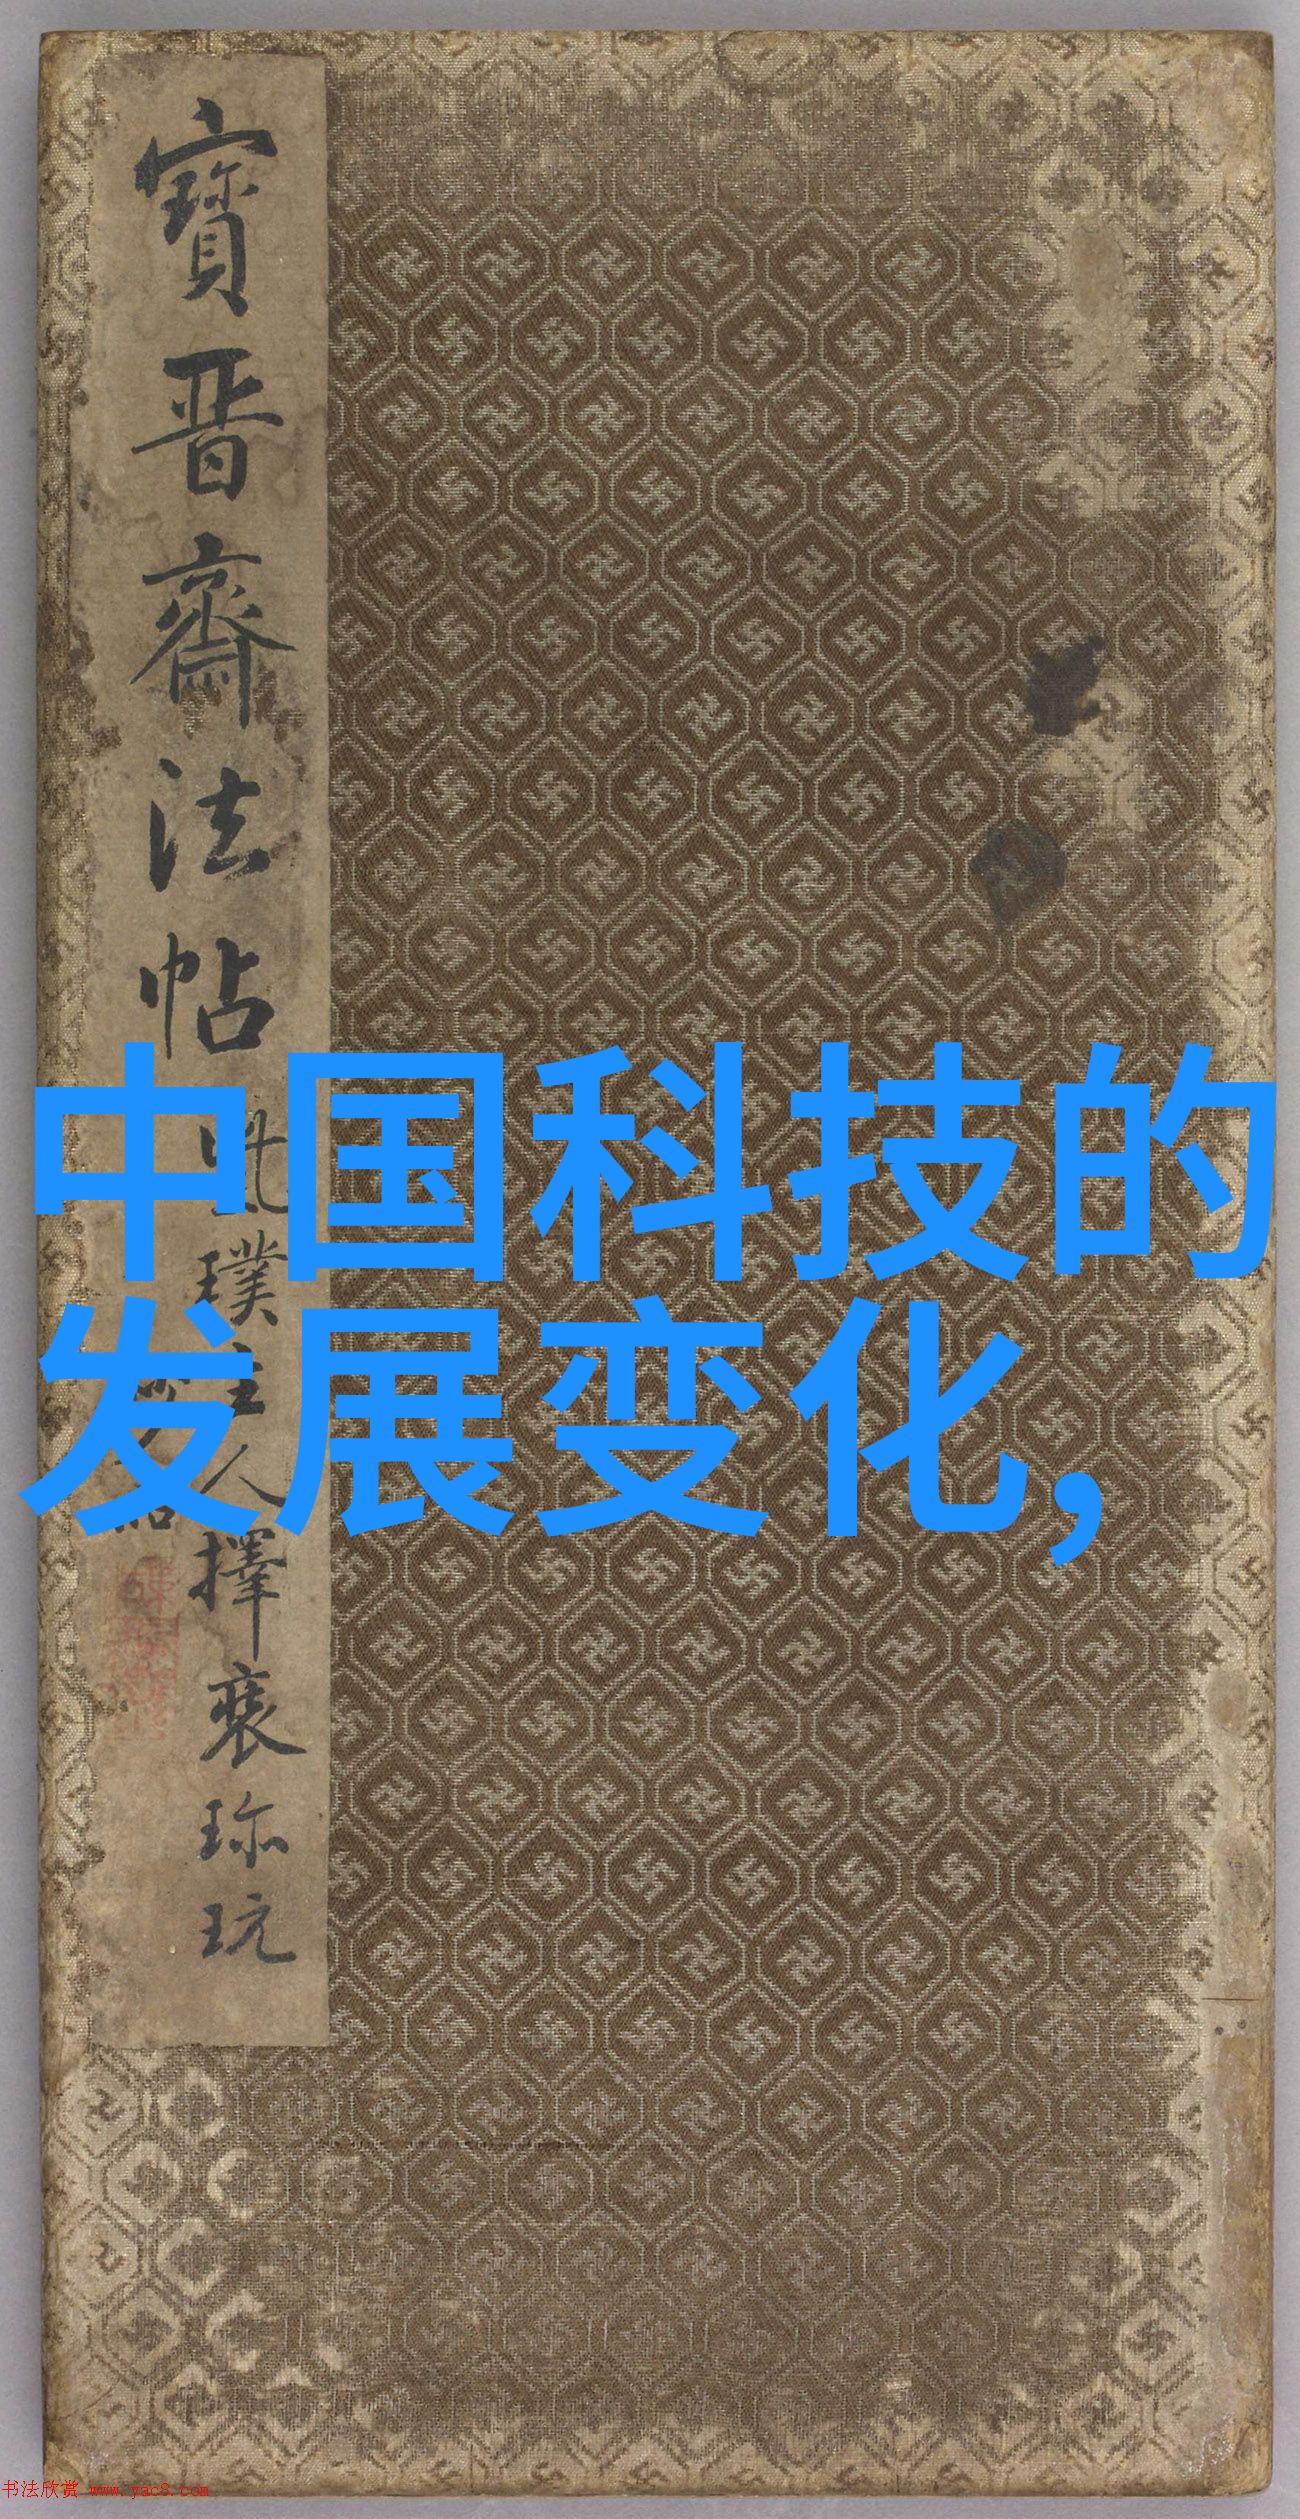 寳晋齋法帖
璞主人擇裘珎玩
中国科技的
发展变化,
书法欣赏 www.yac8.com